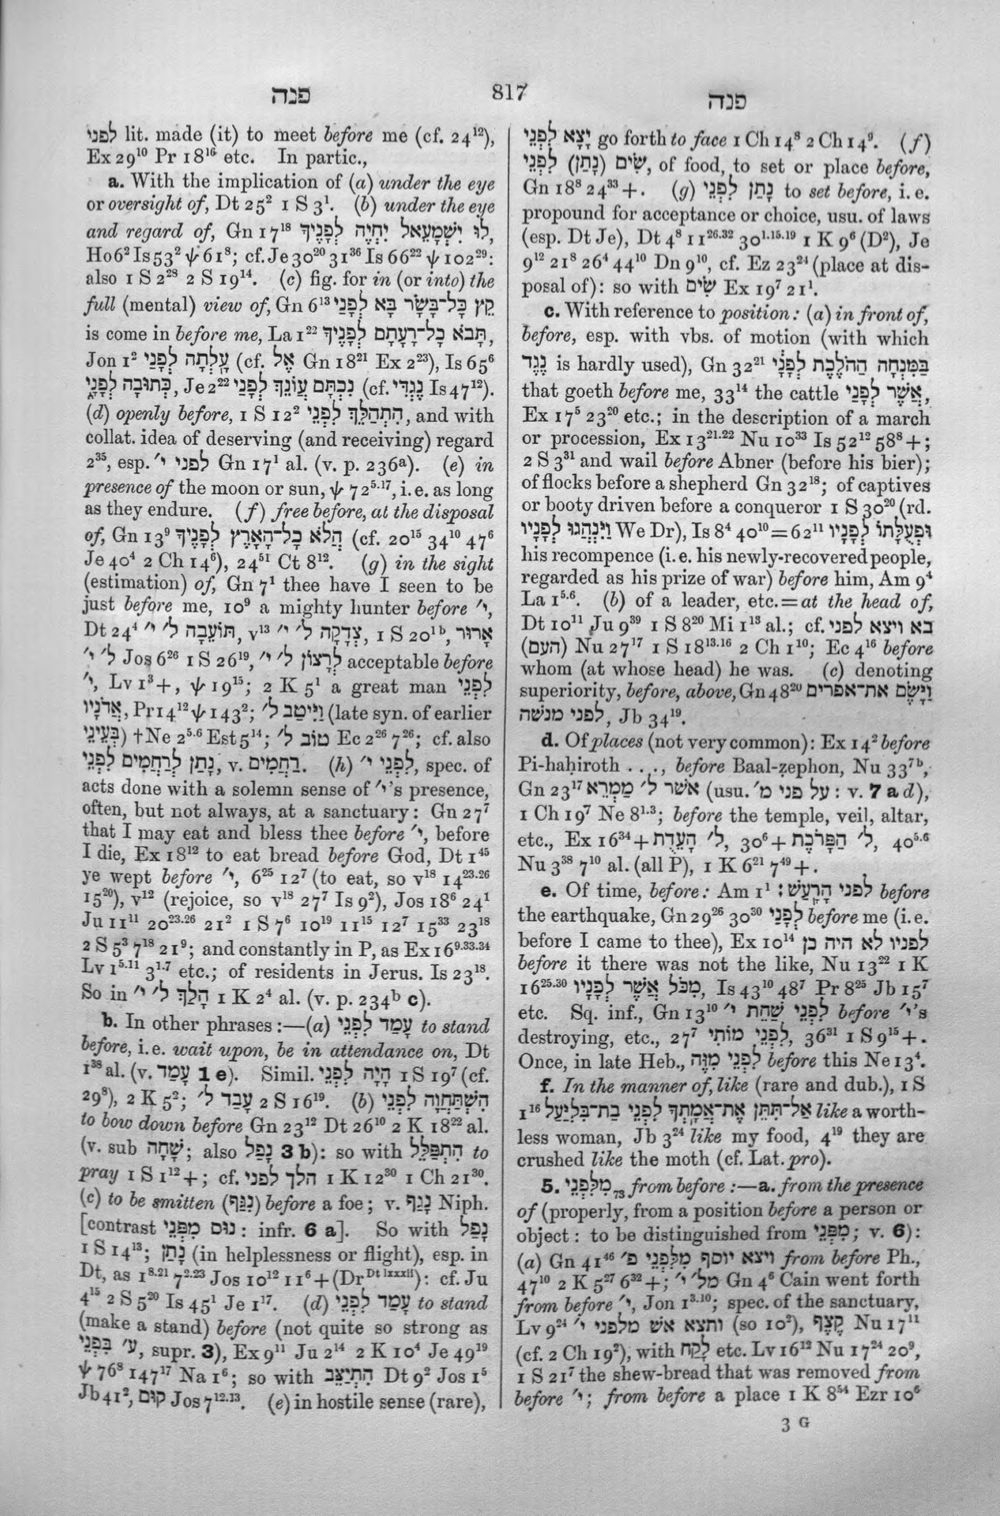 פנה 817 פנה
לפני lit. made (it) to meet before me (cf. 24¹²),
Ex 29¹⁰ Pr 18¹⁶ etc. In partic.,
a. With the implication of (a) under the eye
or oversight of, Dt 25² 1 S 3¹. (b) under the eye
and regard of, Gn 17¹⁸ לוּ יִשְׁמָעֵאל יִחְיֶה לְפָנֶיךָ,
Ho 6² Is 53² ψ 61⁸; cf. Je 30²⁰ 31³⁶ Is 66²² ψ 102²⁹:
also 1 S 2²⁸ 2 S 19¹⁴. (c) fig. for in (or into) the
full (mental) view of, Gn 6¹³ קֵץ כָּל־בָּשָׂר בָּא לְפָנַי
is come in before me, La 1²² תָּבֹא כָל־רָעָתָם לְפָנֶיךָ,
Jon 1² עָלְתָה לְפָנַי (cf. אֶל Gn 18²¹ Ex 2²³), Is 65⁶
כְּתוּבָה לְפָנָי, Je 2²² נִכְתָּם עֲוֹנֵךְ לְפָנַי (cf. נֶגְדִּי Is 47¹²).
(d) openly before, 1 S 12² הִתְהַלֵּךְ לִפְנֵי, and with
collat. idea of deserving (and receiving) regard
2³⁵, esp. לפני י׳ Gn 17¹ al. (v. p. 236ᵃ). (e) in
presence of the moon or sun, ψ 72⁵·¹⁷, i.e. as long
as they endure. (f) free before, at the disposal
of, Gn 13⁹ הֲלֹא כָל־הָאָרֶץ לְפָנֶיךָ (cf. 20¹⁵ 34¹⁰ 47⁶
Je 40⁴ 2 Ch 14⁶), 24⁵¹ Ct 8¹². (g) in the sight
(estimation) of, Gn 7¹ thee have I seen to be
just before me, 10⁹ a mighty hunter before י׳,
Dt 24⁴ תּוֹעֵבָה ל׳ י׳, v¹³ צְדָקָה ל׳ י׳, 1 S 20¹ᵇ, אָרוּר
ל׳ י׳ Jos 6²⁶ 1 S 26¹⁹, לְרָצוֹן ל׳ י׳ acceptable before
י׳, Lv 1³+, ψ 19¹⁵; 2 K 5¹ a great man לִפְנֵי
אֲדֹנָיו, Pr 14¹² ψ 143²; וַיִּיטַב ל׳ (late syn. of earlier
בְּעֵינֵי) †Ne 2⁵·⁶ Est 5¹⁴; טוֹב ל׳ Ec 2²⁶ 7²⁶; cf. also
נָתַן לְרַחֲמִים לִפְנֵי, v. רַחֲמִים. (h) לִפְנֵי י׳, spec. of
acts done with a solemn sense of י׳'s presence,
often, but not always, at a sanctuary: Gn 27⁷
that I may eat and bless thee before י׳, before
I die, Ex 18¹² to eat bread before God, Dt 1⁴⁵
ye wept before י׳, 6²⁵ 12⁷ (to eat, so v¹⁸ 14²³·²⁶
15²⁰), v¹² (rejoice, so v¹⁸ 27⁷ Is 9²), Jos 18⁶ 24¹
Ju 11¹¹ 20²³·²⁶ 21² 1 S 7⁶ 10¹⁹ 11¹⁵ 12⁷ 15³³ 23¹⁸
2 S 5³ 7¹⁸ 21⁹; and constantly in P, as Ex 16⁹·³³·³⁴
Lv 1⁵·¹¹ 3¹·⁷ etc.; of residents in Jerus. Is 23¹⁸.
So in הָלַךְ ל׳ י׳ 1 K 2⁴ al. (v. p. 234ᵇ c).
b. In other phrases:—(a) עָמַד לִפְנֵי to stand
before, i.e. wait upon, be in attendance on, Dt
1³⁸ al. (v. עָמַד 1 e). Simil. הָיָה לִפְנֵי 1 S 19⁷ (cf.
29⁸), 2 K 5²; עָבַד ל׳ 2 S 16¹⁹. (b) הִשְׁתַּחֲוָה לִפְנֵי
to bow down before Gn 23¹² Dt 26¹⁰ 2 K 18²² al.
(v. sub שָׁחָה; also נָפַל 3 b): so with הִתְפַּלֵּל to
pray 1 S 1¹²+; cf. הלך לפני 1 K 12³⁰ 1 Ch 21³⁰.
(c) to be smitten (נִגַּף) before a foe; v. נָגַף Niph.
[contrast נוּס מִפְּנֵי: infr. 6 a]. So with נָפַל
1 S 14¹³; נָתַן (in helplessness or flight), esp. in
Dt, as 1⁸·²¹ 7²·²³ Jos 10¹² 11⁶+(Dr ᴰᵗ ˡˣˣˣⁱⁱ): cf. Ju
4¹⁵ 2 S 5²⁰ Is 45¹ Je 1¹⁷. (d) עָמַד לִפְנֵי to stand
(make a stand) before (not quite so strong as
ע׳ בִּפְנֵי, supr. 3), Ex 9¹¹ Ju 2¹⁴ 2 K 10⁴ Je 49¹⁹
ψ 76⁸ 147¹⁷ Na 1⁶; so with הִתְיַצֵּב Dt 9² Jos 1⁵
Jb 41², קוּם Jos 7¹²·¹³. (e) in hostile sense (rare),
יָצָא לִפְנֵי go forth to face 1 Ch 14⁸ 2 Ch 14⁹. (f)
שִׂים (נָתַן) לִפְנֵי, of food, to set or place before,
Gn 18⁸ 24³³+. (g) נָתַן לִפְנֵי to set before, i.e.
propound for acceptance or choice, usu. of laws
(esp. Dt Je), Dt 4⁸ 11²⁶·³² 30¹·¹⁵·¹⁹ 1 K 9⁶ (D²), Je
9¹² 21⁸ 26⁴ 44¹⁰ Dn 9¹⁰, cf. Ez 23²⁴ (place at dis-
posal of): so with שִׂים Ex 19⁷ 21¹.
c. With reference to position: (a) in front of,
before, esp. with vbs. of motion (with which
נֶגֶד is hardly used), Gn 32²¹ בַּמִּנְחָה הַהֹלֶכֶת לְפָנָי
that goeth before me, 33¹⁴ the cattle אֲשֶׁר לְפָנַי,
Ex 17⁵ 23²⁰ etc.; in the description of a march
or procession, Ex 13²¹·²² Nu 10³³ Is 52¹² 58⁸+;
2 S 3³¹ and wail before Abner (before his bier);
of flocks before a shepherd Gn 32¹⁸; of captives
or booty driven before a conqueror 1 S 30²⁰ (rd.
וַיִּנְהֲגוּ לְפָנָיו We Dr), Is 8⁴ 40¹⁰=62¹¹ וּפְעֻלָּתוֹ לְפָנָיו
his recompence (i.e. his newly-recovered people,
regarded as his prize of war) before him, Am 9⁴
La 1⁵·⁶. (b) of a leader, etc.=at the head of,
Dt 10¹¹ Ju 9³⁹ 1 S 8²⁰ Mi 1¹³ al.; cf. בא ויצא לפני
(העם) Nu 27¹⁷ 1 S 18¹³·¹⁶ 2 Ch 1¹⁰; Ec 4¹⁶ before
whom (at whose head) he was. (c) denoting
superiority, before, above, Gn 48²⁰ וַיָּשֶׂם את־אפרים
לפני מנשה, Jb 34¹⁹.
d. Of places (not very common): Ex 14² before
Pi-haḥiroth . . ., before Baal-ẓephon, Nu 33⁷ᵇ,
Gn 23¹⁷ אשר ל׳ מַמְרֵא (usu. על פני מ׳: v. 7 a d),
1 Ch 19⁷ Ne 8¹·³; before the temple, veil, altar,
etc., Ex 16³⁴+ ל׳ הָעֵדֻת, 30⁶+ ל׳ הַפָּרֹכֶת, 40⁵·⁶
Nu 3³⁸ 7¹⁰ al. (all P), 1 K 6²¹ 7⁴⁹+.
e. Of time, before: Am 1¹ לפני הָרָעַשׁ׃ before
the earthquake, Gn 29²⁶ 30³⁰ לְפָנַי before me (i.e.
before I came to thee), Ex 10¹⁴ לפניו לא היה כן
before it there was not the like, Nu 13²² 1 K
16²⁵·³⁰ מִכֹּל אֲשֶׁר לְפָנָיו, Is 43¹⁰ 48⁷ Pr 8²⁵ Jb 15⁷
etc. Sq. inf., Gn 13¹⁰ לִפְנֵי שַׁחֵת י׳ before י׳'s
destroying, etc., 27⁷ לִפְנֵי מוֹתִי, 36³¹ 1 S 9¹⁵+.
Once, in late Heb., לִפְנֵי מִזֶּה before this Ne 13⁴.
f. In the manner of, like (rare and dub.), 1 S
1¹⁶ אַל־תִּתֵּן אֶת־אֲמָתְךָ לִפְנֵי בַּת־בְּלִיָּעַל like a worth-
less woman, Jb 3²⁴ like my food, 4¹⁹ they are
crushed like the moth (cf. Lat. pro).
5. מִלִּפְנֵי₇₃ from before:—a. from the presence
of (properly, from a position before a person or
object: to be distinguished from מִפְּנֵי; v. 6):
(a) Gn 41⁴⁶ ויצא יוסף מִלִּפְנֵי פ׳ from before Ph.,
47¹⁰ 2 K 5²⁷ 6³²+; מל׳ י׳ Gn 4⁶ Cain went forth
from before י׳, Jon 1³·¹⁰; spec. of the sanctuary,
Lv 9²⁴ ותצא אש מלפני י׳ (so 10²), קֶצֶף Nu 17¹¹
(cf. 2 Ch 19²), with לָקַח etc. Lv 16¹² Nu 17²⁴ 20⁹,
1 S 21⁷ the shew-bread that was removed from
before י׳; from before a place 1 K 8⁵⁴ Ezr 10⁶
3 G